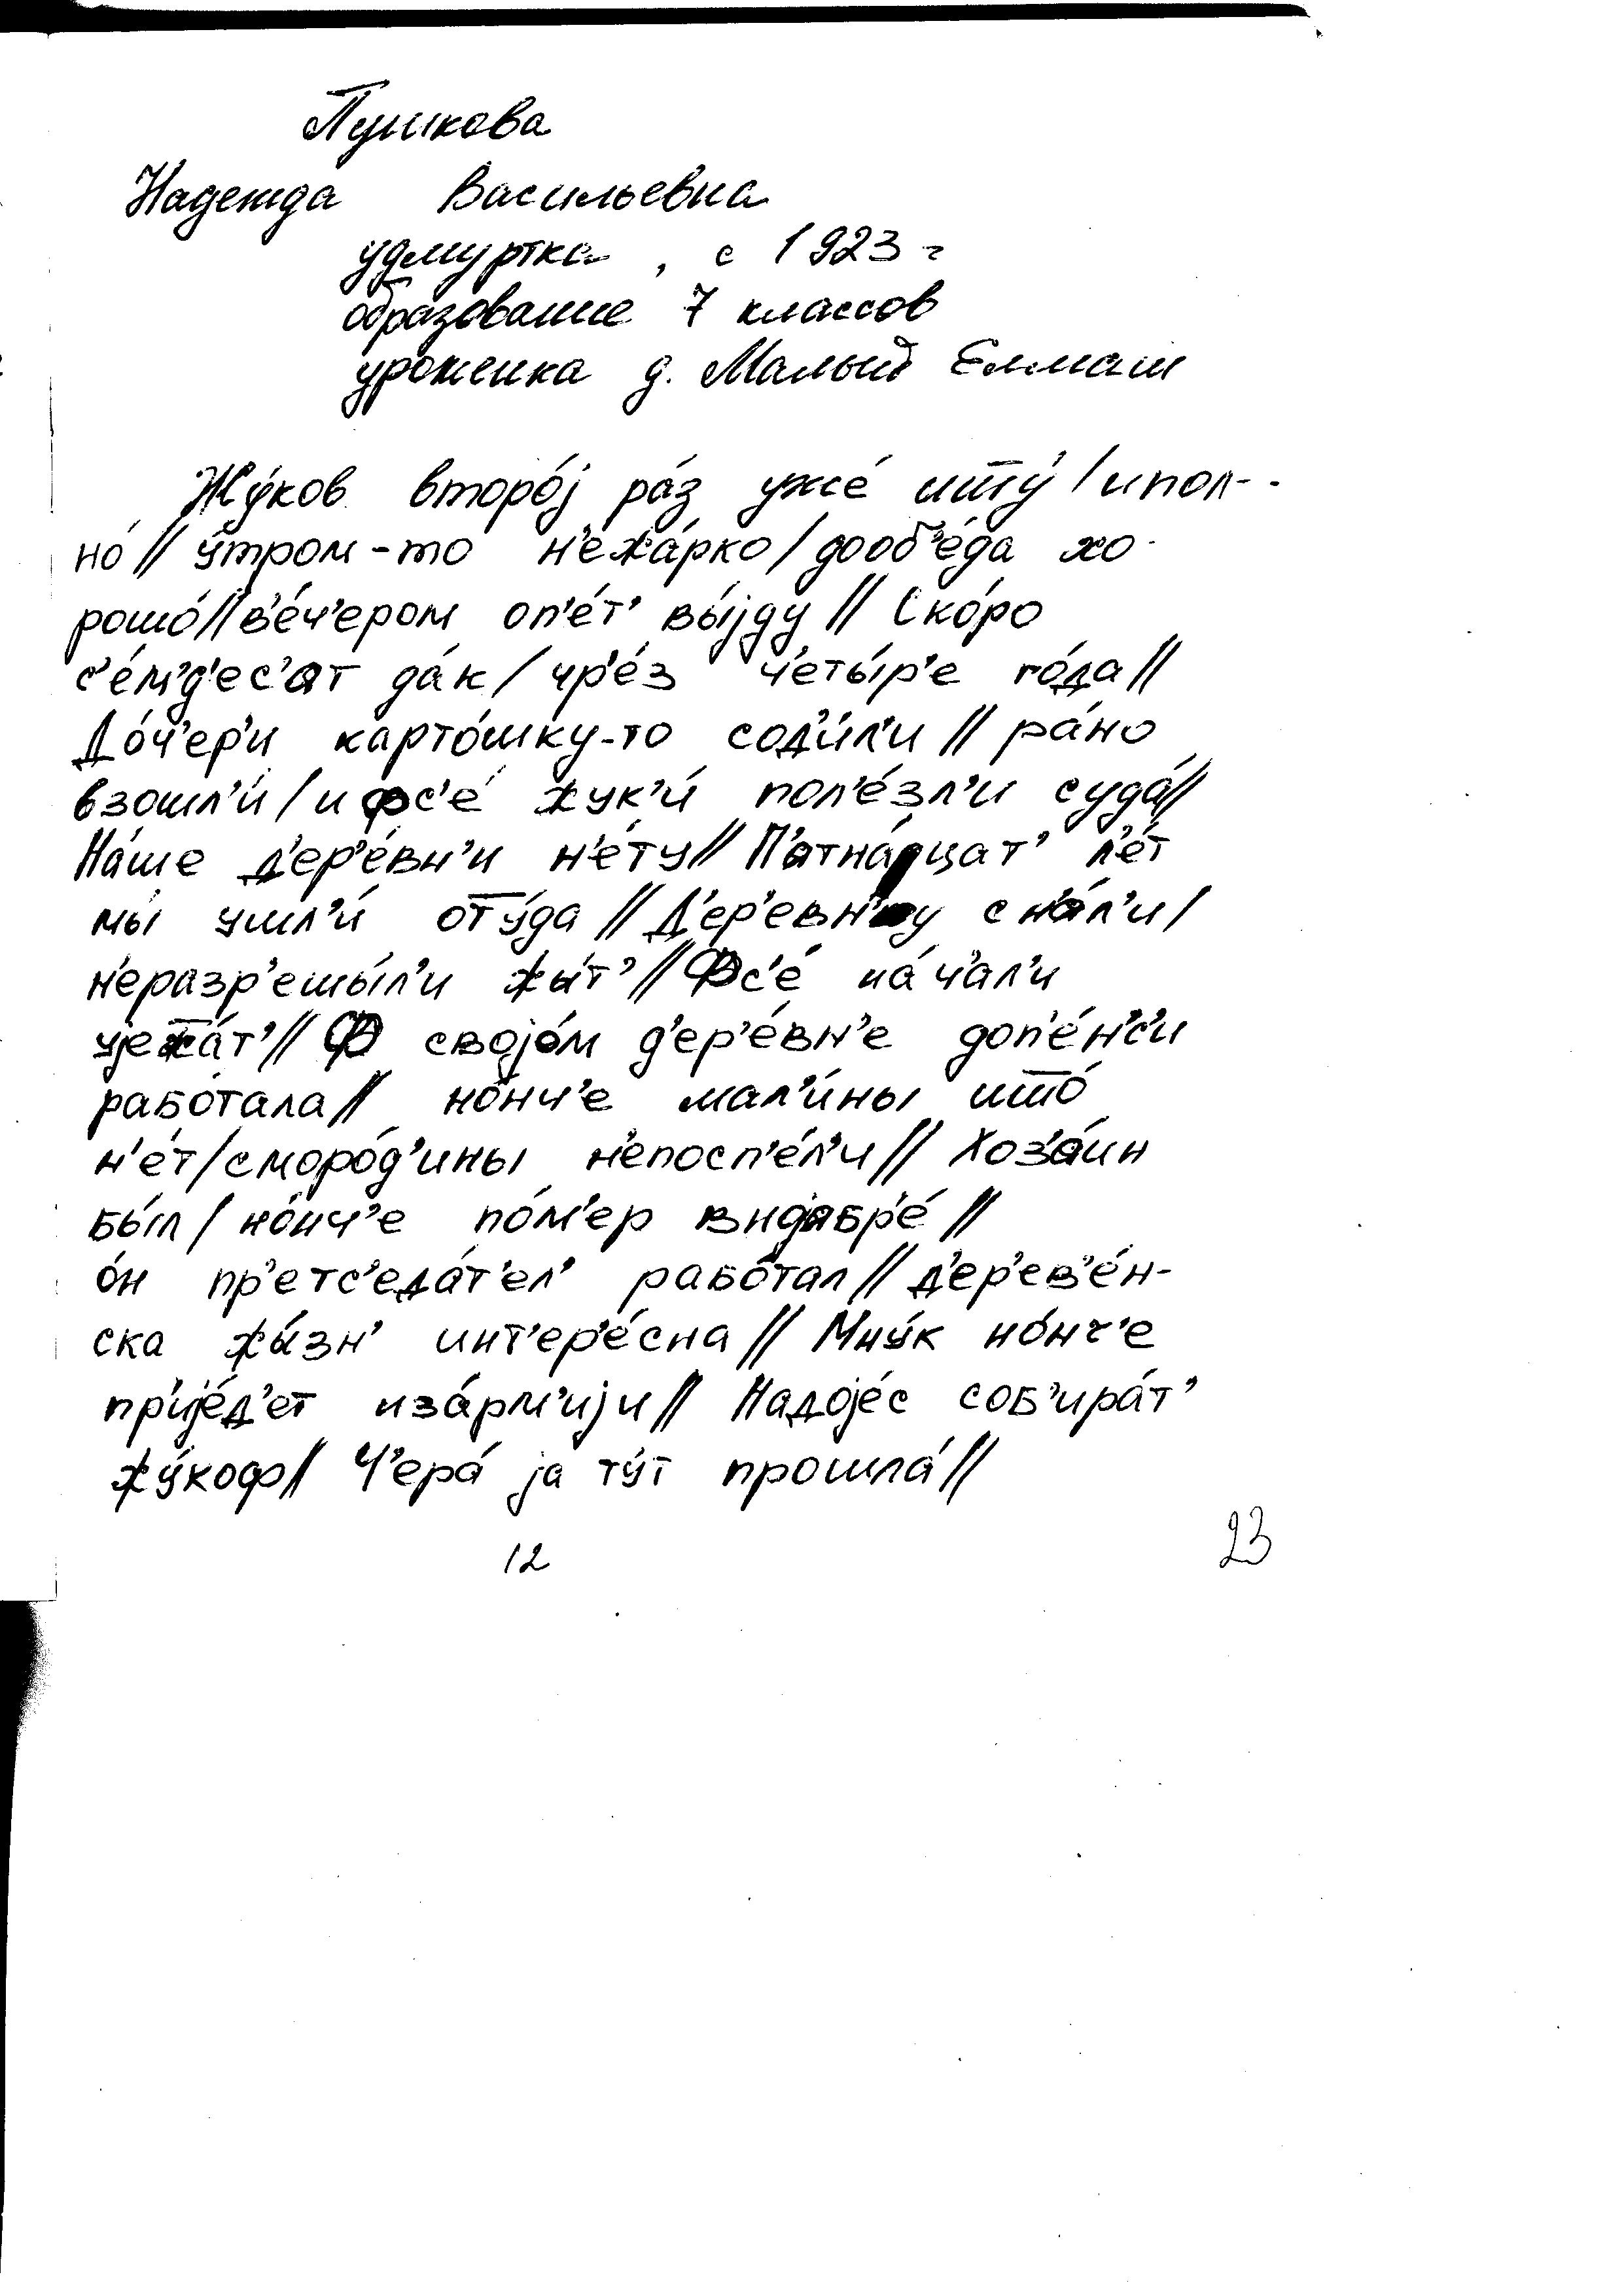 Пушкова
Надежда Васильевна
удмуртка, с 1923 г
образование 7 классов
уроженка д. Малый Еммаш
Жу́ков второ́j ра́з уже́ ишту́ / ипол-
но́ // у́тром-то н'ежа́рко / дооб'е́да хо-
рошо́ // в'е́ч'ером оп'е́т' вы́jду // Ско́ро
с'е́м'д'ес'ат да́к / чр'е́з ч'еты́р'е го́да //
До́ч'ер'и карто́шку-то сод'и́л'и // ра́но
взошл'и́ / и фс'е́ жук'и́ пол'е́зл'и суда́ //
На́ше д'ер'е́вн'и н'е́ту // П'атна́цат' л'е́т
мы́ ушл'и́ оту́да // Д'ер'евн'у сн'а́л'и /
н'еразр'ешы́л'и жы́т' // Фс'е́ на́ч'ал'и
уjежа́т' // Ф своjо́м д'ер'е́вн'е доп'е́н'с'и
рабо́тала // но́нч'е мал'и́ны што́
н'е́т / сморо́д'ины н'епосп'е́л'и // Хоз'а́ин
бы́л / но́нч'е по́м'ер внojабр'е́ //
о́н пр'етс'еда́т'ел' рабо́тал // д'ер'ев'е́н-
ска жы́зн' инт'ер'е́сна // Мну́к но́нч'е
пр'иjе́д'ет иза́рм'иjи // Надоjе́с соб'ира́т'
жу́коф // Ч'ера́ jа ту́т прошла́ //
12
23